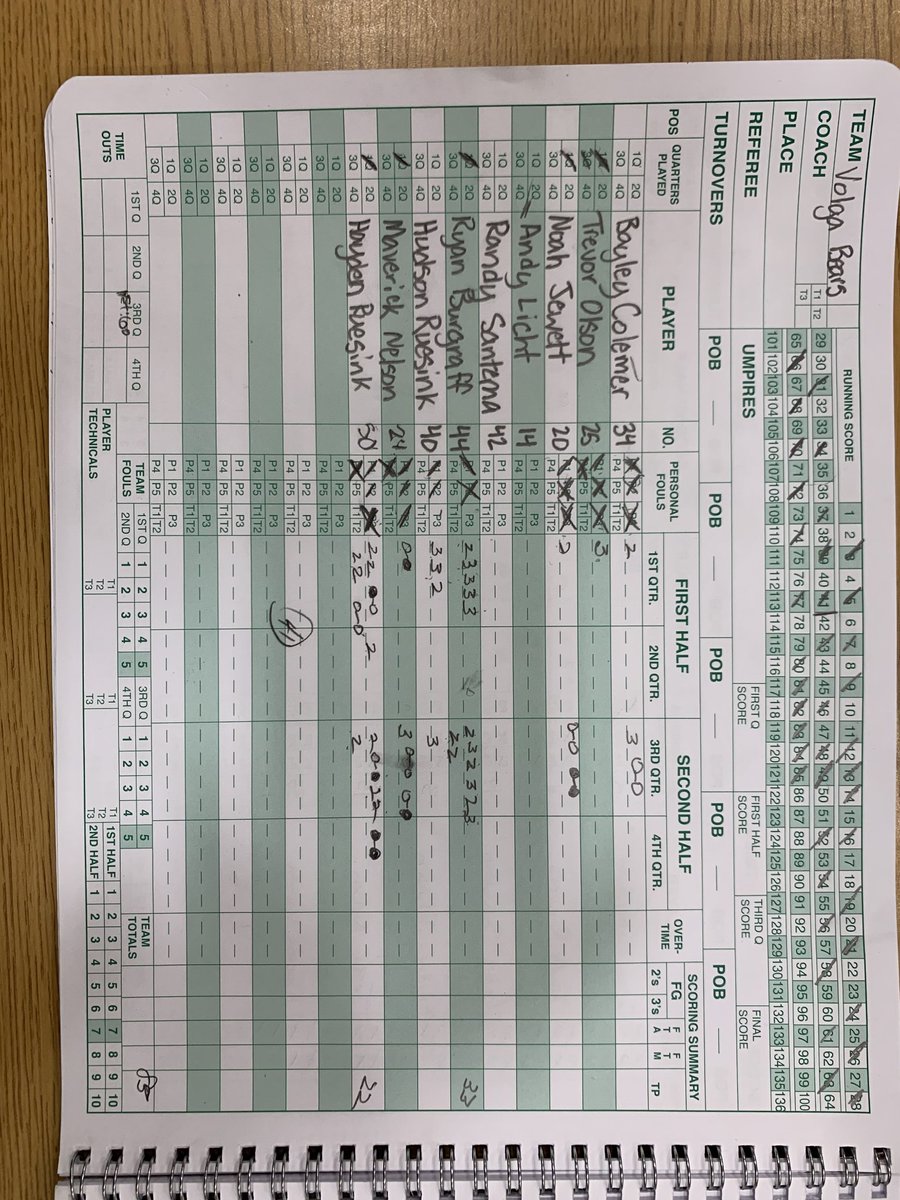 TEAM Volga Bears
COACH
T1 T2
T3
PLACE
REFEREE
UMPIRES
TURNOVERS
RUNNING SCORE
1 2 3 4 5 6 7 8 9 10 11 12 13 14 15 16 17 18 19 20 21 22 23 24 25 26 27 28
29 30 31 32 33 34 35 36 37 38 39 40 41 42 43 44 45 46 47 48 49 50 51 52 53 54 55 56 57 58 59 60 61 62 63 64
65 66 67 68 69 70 71 72 73 74 75 76 77 78 79 80 81 82 83 84 85 86 87 88 89 90 91 92 93 94 95 96 97 98 99 100
101 102 103 104 105 106 107 108 109 110 111 112 113 114 115 116 117 118 119 120 121 122 123 124 125 126 127 128 129 130 131 132 133 134 135 136
FIRST Q SCORE
FIRST HALF SCORE
THIRD Q SCORE
FINAL SCORE
POB POB POB POB POB
POS
QUARTERS PLAYED
PLAYER
NO.
PERSONAL FOULS
FIRST HALF
1ST QTR. 2ND QTR.
SECOND HALF
3RD QTR. 4TH QTR.
OVER-TIME
SCORING SUMMARY
FG
2's 3's
FTA FTM TP
1Q 2Q 3Q 4Q Bayley Colemer 34 P4 P5 T1 T2 2 3 0 0
2Q 4Q Trevor Olson 25 P4 P5 T1 T2 3
2Q 3Q 4Q Noah Jewett 20 P4 P5 T1 T2 2 0 0 0 0
1Q 2Q 3Q 4Q Andy Licht 14 P1 P2 P3 P4 P5 T1 T2
1Q 2Q 3Q 4Q Randy Santema 42 P1 P2 P3 P4 P5 T1 T2
1Q 2Q 4Q Ryan Burggraff 44 P4 T1 T2 2 3 3 3 3 2 3 2 3 2 3 2 2 33
1Q 2Q 3Q 4Q Hudson Ruesink 40 P3 P4 P5 T1 T2 3 3 2 3
2Q 3Q 4Q Maverick Nelson 24 P5 T1 T2 0 0 3 0 0 0 0
2Q 3Q 4Q Hayden Ruesink 50 P5 2 2 0 0 2 2 2 0 0 2 0 0 2 2 0 0 2 22
41
TIME OUTS
1ST Q 2ND Q 3RD Q 4TH Q
PLAYER TECHNICALS
TEAM FOULS
1ST Q 1 2 3 4 5
2ND Q
3RD Q 1 2 3 4 5
4TH Q
T1 T2 T3
T1 T2 T3
T1 T2 T3
1ST HALF 1 2 3 4 5 6 7 8 9 10
2ND HALF
TEAM TOTALS
85